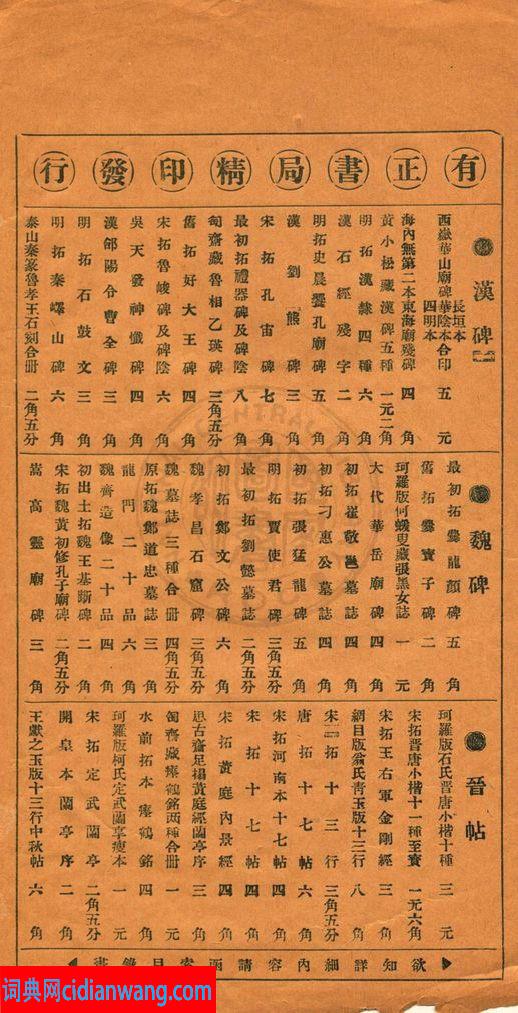 有正書局精印發行
漢碑
西嶽華山廟碑長垣本華陰本四明本合印 五元
海內無第二本東海廟殘碑 四角
黃小松藏漢碑五種 一元二角
明拓漢隸四種 六角
漢石經殘字 二角
明拓史晨饗孔廟碑 五角
漢劉熊碑 三角
宋拓孔宙碑 七角
最初拓禮器碑及碑陰 八角
匋齋藏魯相乙瑛碑 三角五分
舊拓好大王碑 四角
宋拓魯峻碑及碑陰 六角
吳天發神懺碑 四角
漢郃陽令曹全碑 三角
明拓石鼓文 三角
明拓秦嶧山碑 六角
泰山秦篆魯孝王石刻合冊 二角五分
魏碑
最初拓爨龍顏碑 五角
舊拓爨寶子碑 二角
珂羅版何蝯叟藏張黑女誌 一元
大代華岳廟碑 四角
初拓崔敬邕墓誌 四角
初拓刁惠公墓誌 四角
初拓張猛龍碑 五角
明拓賈使君碑 三角五分
最初拓劉懿墓誌 二角
初拓鄭文公碑 六角
魏孝昌石窟碑 三角五分
魏墓誌三種合冊 四角五分
原拓魏鄭道忠墓誌 三角
龍門二十品 六角
魏齊造像二十品 四角
初出土拓魏王基斷碑 二角
宋拓魏黃初修孔子廟碑 二角五分
嵩高靈廟碑 三角
晉帖
珂羅版石氏晉唐小楷十種 三元
宋拓晉唐小楷十一種至寶 一元六角
宋拓王右軍金剛經 三角
網目版翁氏靑玉版十三行 八角
宋拓十三行 三角五分
唐拓十七帖 六角
宋拓河南本十七帖 四角
宋拓十七帖 四角
宋拓黃庭內景經 四角
思古齋足揭黃庭經蘭亭序 三角
匋齋藏瘞鶴銘兩種合冊 一元
水前拓本瘞鶴銘 四角
珂羅版柯氏定武蘭亭瘦本 一元
宋拓定武蘭亭 二角五分
開皇本蘭亭序 二角
王獻之玉版十三行中秋帖 六角
欲知詳細內容請函索目錄書
词典网cidianwang.com